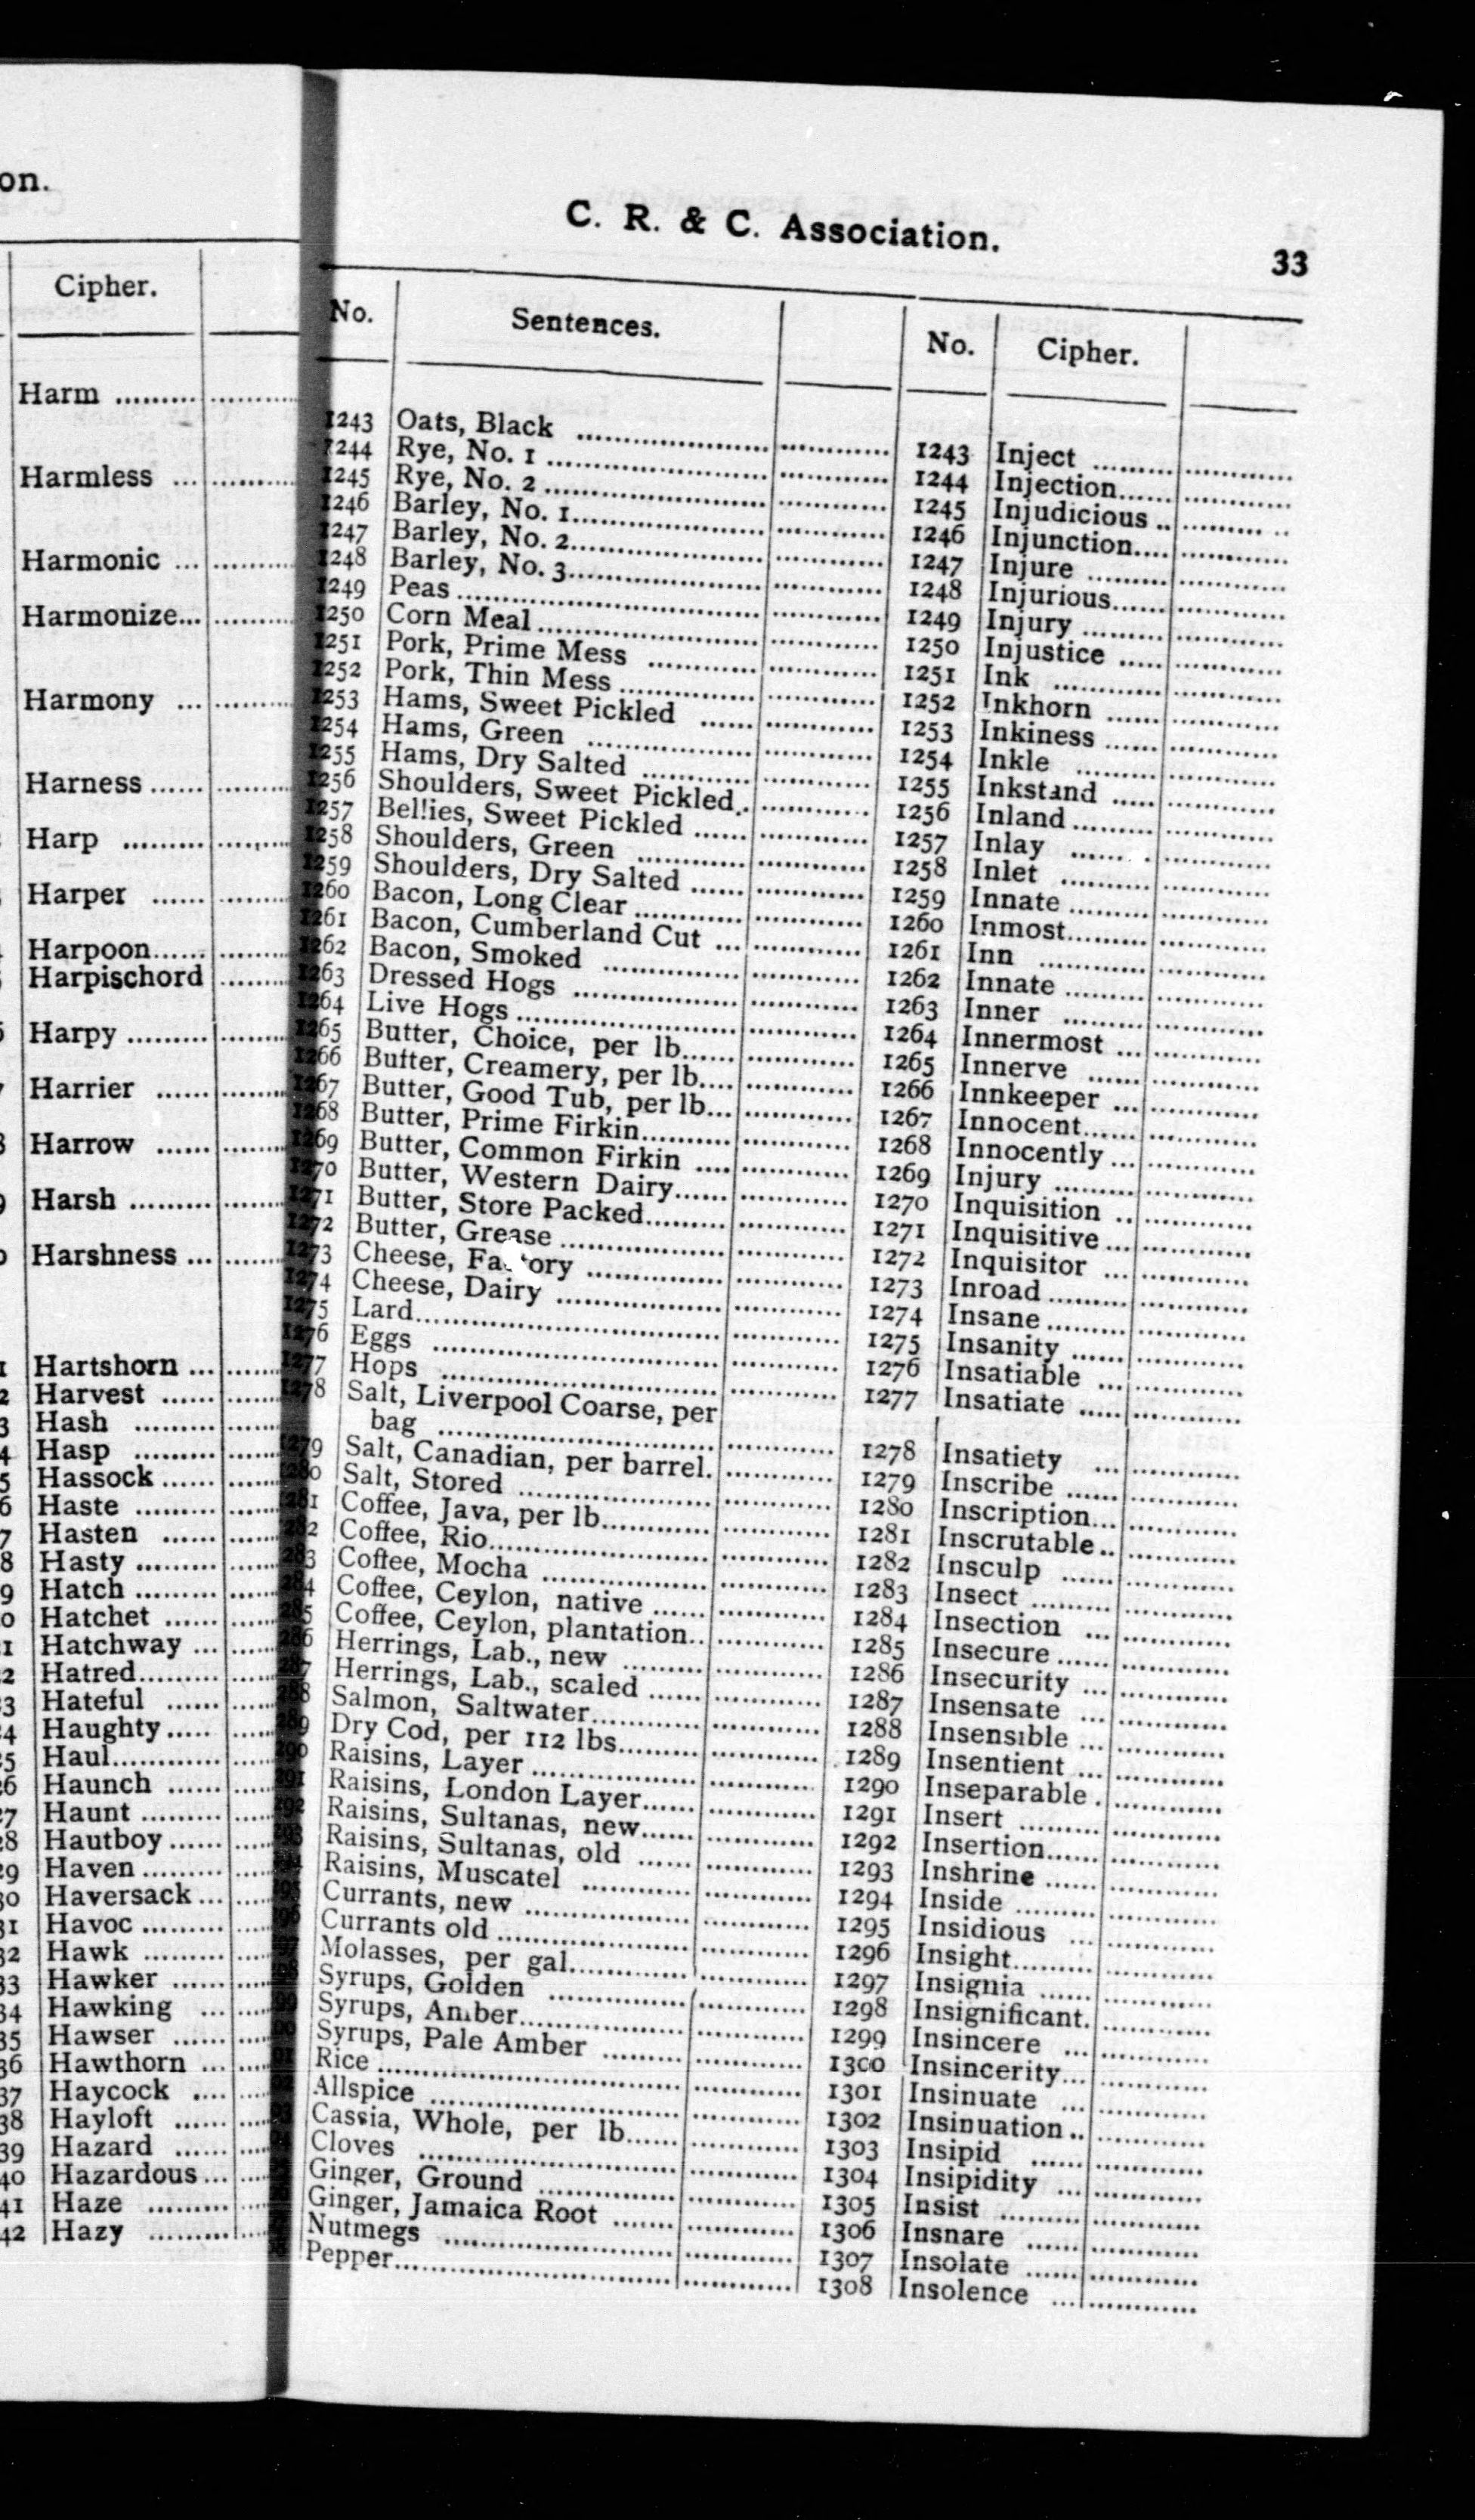 on.
Cipher.
Harm
Harmless
Harmonic
Harmonize
Harmony
Harness
Harp
Harper
Harpoon
Harpischord
Harpy
Harrier
Harrow
Harsh
Harshness
Hartshorn
Harvest
Hash
Hasp
Hassock
Haste
Hasten
Hasty
Hatch
Hatchet
Hatchway
Hatred
Hateful
Haughty
Haul
Haunch
Haunt
Hautboy
Haven
Haversack
Havoc
Hawk
Hawker
Hawking
Hawser
Hawthorn
Haycock
Hayloft
Hazard
Hazardous
Haze
Hazy
C. R. & C. Association.
33
No. Sentences. No. Cipher.
1243 Oats, Black 1243 Inject
1244 Rye, No. 1 1244 Injection
1245 Rye, No. 2 1245 Injudicious
1246 Barley, No. 1 1246 Injunction
1247 Barley, No. 2 1247 Injure
1248 Barley, No. 3 1248 Injurious
1249 Peas 1249 Injury
1250 Corn Meal 1250 Injustice
1251 Pork, Prime Mess 1251 Ink
1252 Pork, Thin Mess 1252 Inkhorn
1253 Hams, Sweet Pickled 1253 Inkiness
1254 Hams, Green 1254 Inkle
1255 Hams, Dry Salted 1255 Inkstand
1256 Shoulders, Sweet Pickled 1256 Inland
1257 Bellies, Sweet Pickled 1257 Inlay
1258 Shoulders, Green 1258 Inlet
1259 Shoulders, Dry Salted 1259 Innate
1260 Bacon, Long Clear 1260 Inmost
1261 Bacon, Cumberland Cut 1261 Inn
1262 Bacon, Smoked 1262 Innate
1263 Dressed Hogs 1263 Inner
1264 Live Hogs 1264 Innermost
1265 Butter, Choice, per lb. 1265 Innerve
1266 Butter, Creamery, per lb. 1266 Innkeeper
1267 Butter, Good Tub, per lb. 1267 Innocent
1268 Butter, Prime Firkin 1268 Innocently
1269 Butter, Common Firkin 1269 Injury
1270 Butter, Western Dairy 1270 Inquisition
1271 Butter, Store Packed 1271 Inquisitive
1272 Butter, Grease 1272 Inquisitor
1273 Cheese, Factory 1273 Inroad
1274 Cheese, Dairy 1274 Insane
1275 Lard 1275 Insanity
1276 Eggs 1276 Insatiable
1277 Hops 1277 Insatiate
1278 Salt, Liverpool Coarse, per
bag 1278 Insatiety
1279 Salt, Canadian, per barrel. 1279 Inscribe
1280 Salt, Stored 1280 Inscription
1281 Coffee, Java, per lb. 1281 Inscrutable
1282 Coffee, Rio 1282 Insculp
1283 Coffee, Mocha 1283 Insect
1284 Coffee, Ceylon, native 1284 Insection
1285 Coffee, Ceylon, plantation 1285 Insecure
1286 Herrings, Lab., new 1286 Insecurity
1287 Herrings, Lab., scaled 1287 Insensate
1288 Salmon, Saltwater 1288 Insensible
1289 Dry Cod, per 112 lbs. 1289 Insentient
1290 Raisins, Layer 1290 Inseparable
1291 Raisins, London Layer 1291 Insert
Raisins, Sultanas, new 1292 Insertion
Raisins, Sultanas, old 1293 Inshrine
Raisins, Muscatel 1294 Inside
Currants, new 1295 Insidious
Currants old 1296 Insight
Molasses, per gal. 1297 Insignia
Syrups, Golden 1298 Insignificant.
Syrups, Amber 1299 Insincere
Syrups, Pale Amber 1300 Insincerity
Rice 1301 Insinuate
Allspice 1302 Insinuation
Cassia, Whole, per lb. 1303 Insipid
Cloves 1304 Insipidity
Ginger, Ground 1305 Insist
Ginger, Jamaica Root 1306 Insnare
Nutmegs 1307 Insolate
Pepper 1308 Insolence